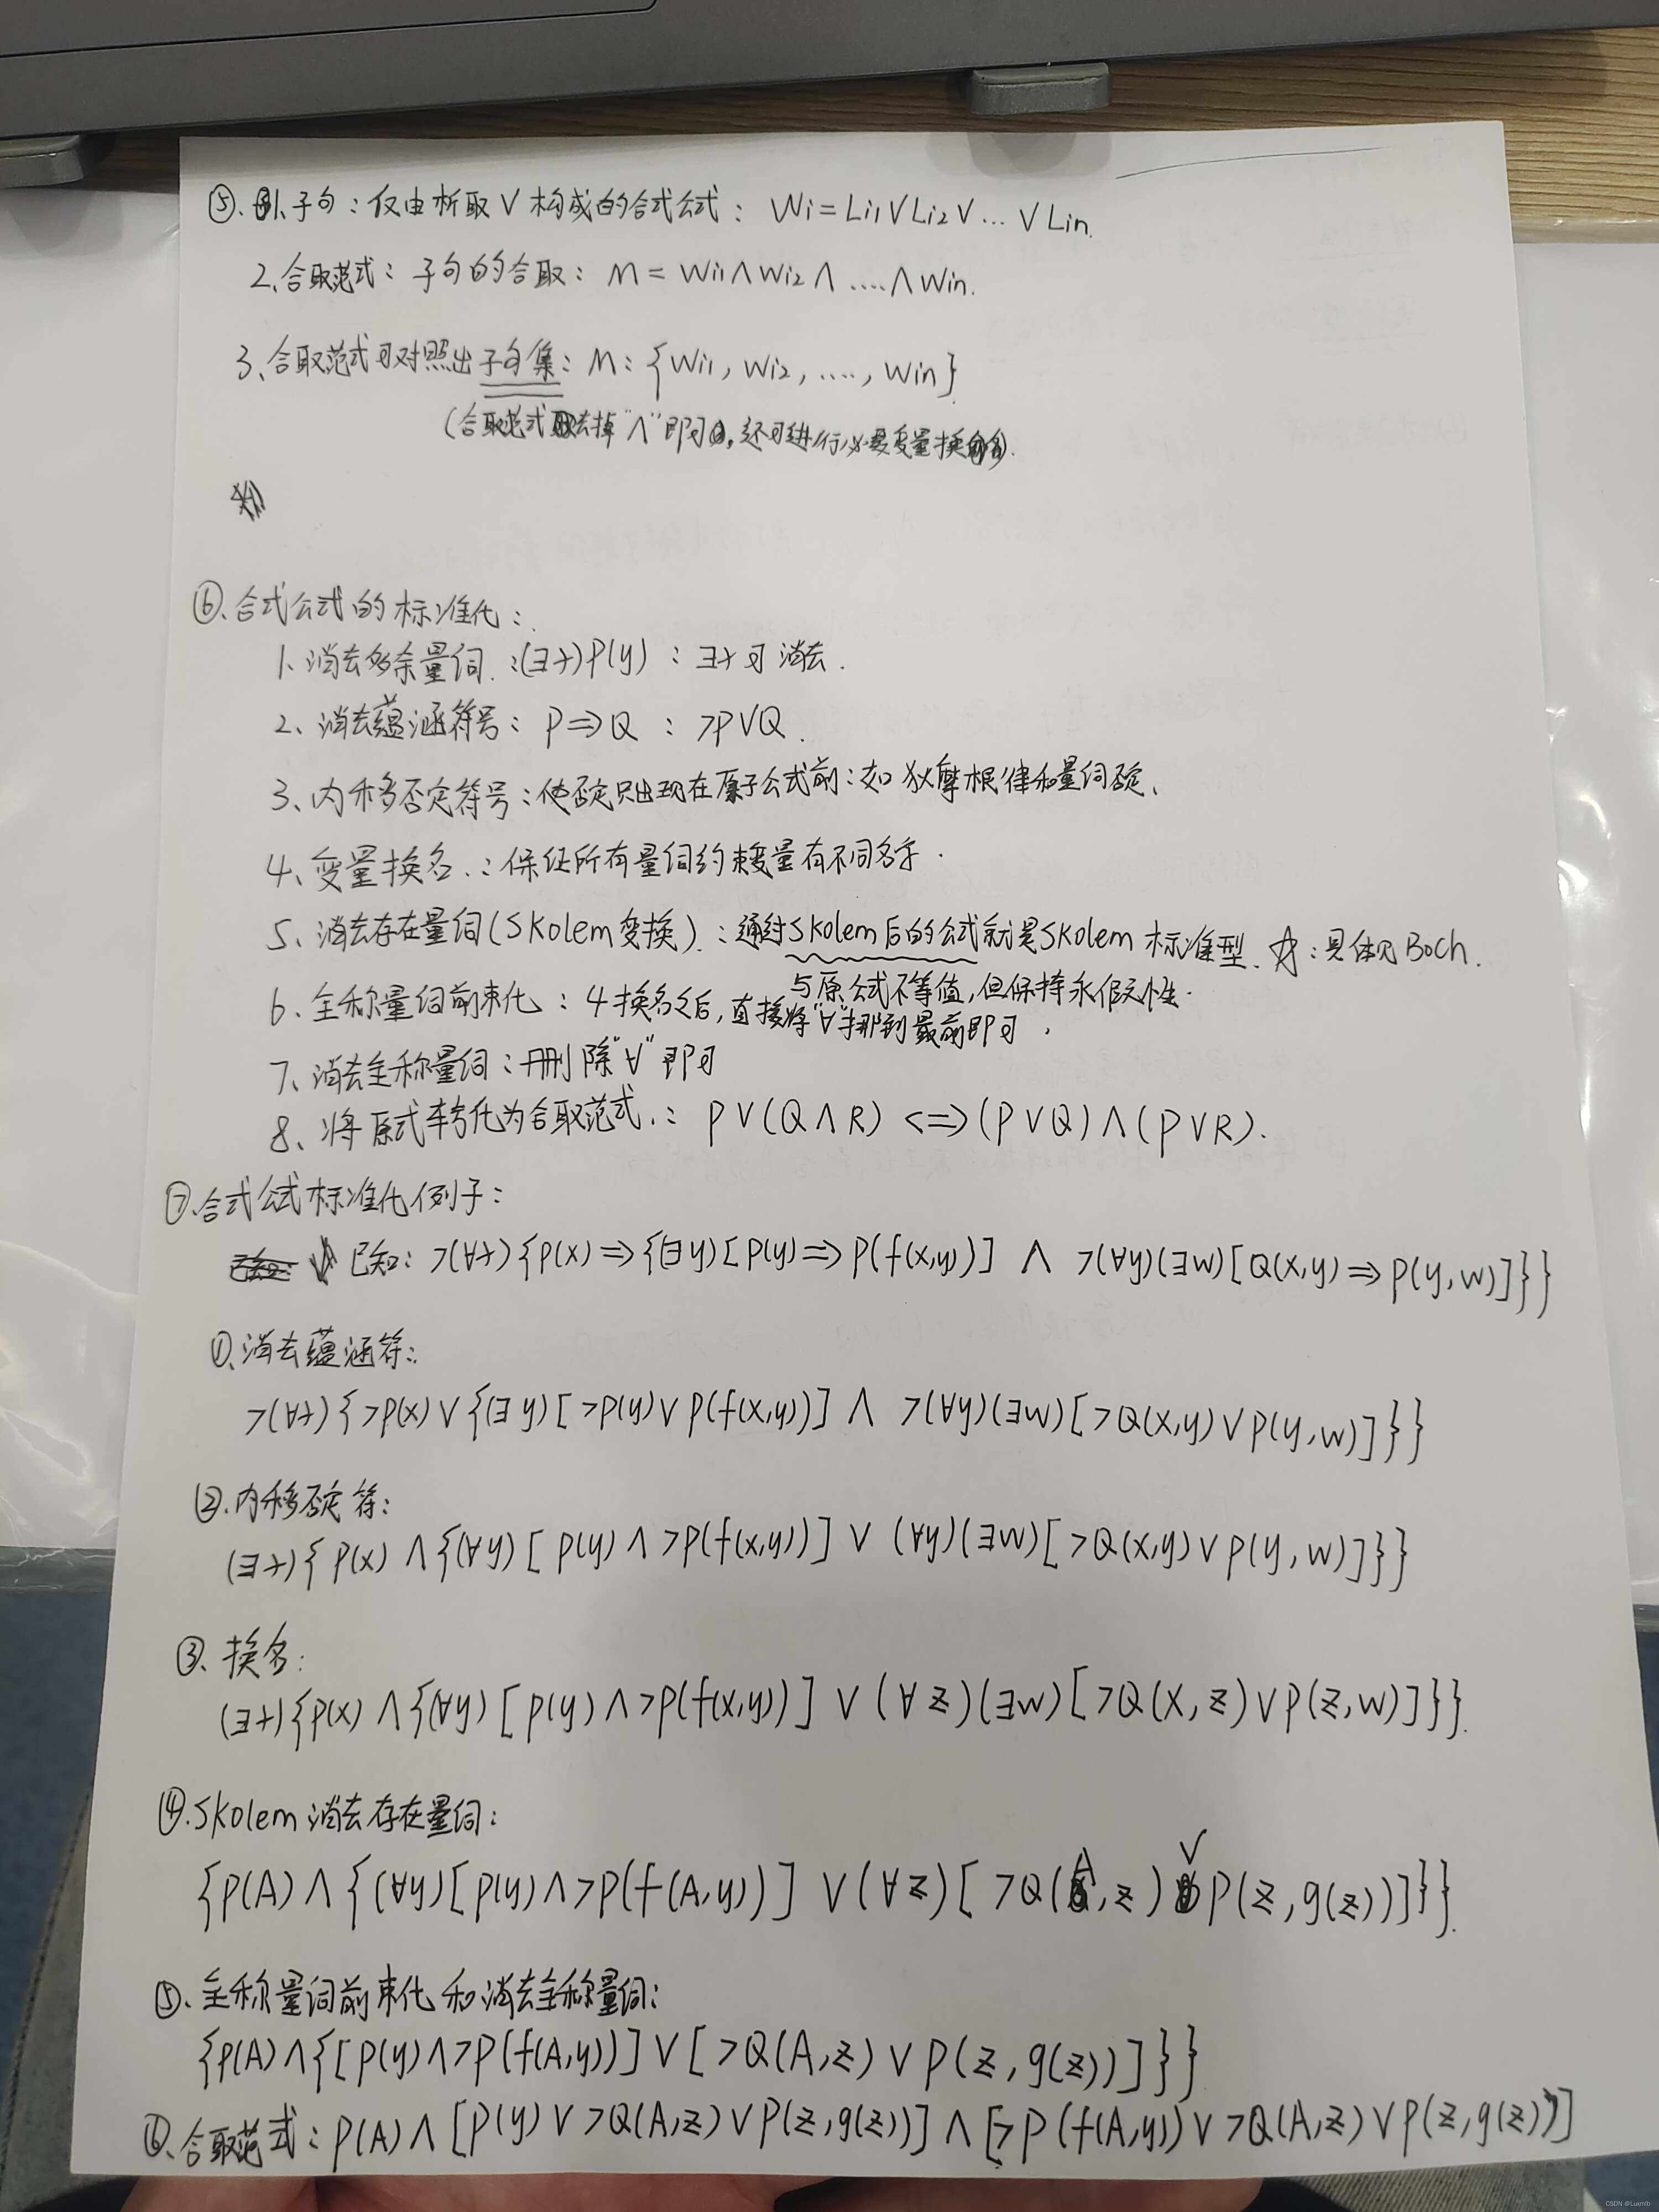 ⑤. 1.子句：仅由析取∨构成的合式公式：Wi=Li1∨Li2∨…∨Lin.
2.合取范式：子句的合取：M=Wi1∧Wi2∧....∧Win.
3、合取范式可对照出子句集：M：{Wi1, Wi2, ...., Win}
(合取范式去掉"∧"即可, 还可进行必要变量换名).
⑥.合式公式的标准化：
1、消去多余量词.：(∃x)P(y)：∃x可消去.
2、消去蕴涵符号：P⇒Q：¬P∨Q.
3、内移否定符号：使否定只出现在原子公式前：如狄摩根律和量词否定、
4、变量换名.：保证所有量词约束变量有不同名字.
5、消去存在量词(SKolem变换).：通过SKolem后的公式就是SKolem标准型、☆：具体见Boch.
与原公式不等值，但保持永假性.
6、全称量词前束化：4换名之后，直接将"∀"挪到最前即可.
7、消去全称量词：删除"∀"即可
8、将原式转化为合取范式.：P∨(Q∧R)<=>(P∨Q)∧(P∨R).
⑦.合式公式标准化例子：
已知：¬(∀x){P(x)⇒{(∃y)[P(y)⇒P(f(x,y))] ∧ ¬(∀y)(∃w)[Q(x,y)⇒P(y,w)]}}
①、消去蕴涵符：
¬(∀x){¬P(x)∨{(∃y)[¬P(y)∨P(f(x,y))] ∧ ¬(∀y)(∃w)[¬Q(x,y)∨P(y,w)]}}
②.内移否定符：
(∃x){P(x)∧{(∀y)[P(y)∧¬P(f(x,y))] ∨ (∀y)(∃w)[¬Q(x,y)∨P(y,w)]}}
③、换名：
(∃x){P(x)∧{(∀y)[P(y)∧¬P(f(x,y))] ∨ (∀z)(∃w)[¬Q(x,z)∨P(z,w)]}}.
④.SKolem消去存在量词：
{P(A)∧{(∀y)[P(y)∧¬P(f(A,y))] ∨(∀z)[¬Q(A,z)∨P(z,g(z))]}}.
⑤、全称量词前束化和消去全称量词：
{P(A)∧{[P(y)∧¬P(f(A,y))]∨[¬Q(A,z)∨P(z,g(z))]}}
⑥、合取范式：P(A)∧[P(y)∨¬Q(A,z)∨P(z,g(z))]∧[¬P(f(A,y))∨¬Q(A,z)∨P(z,g(z))]